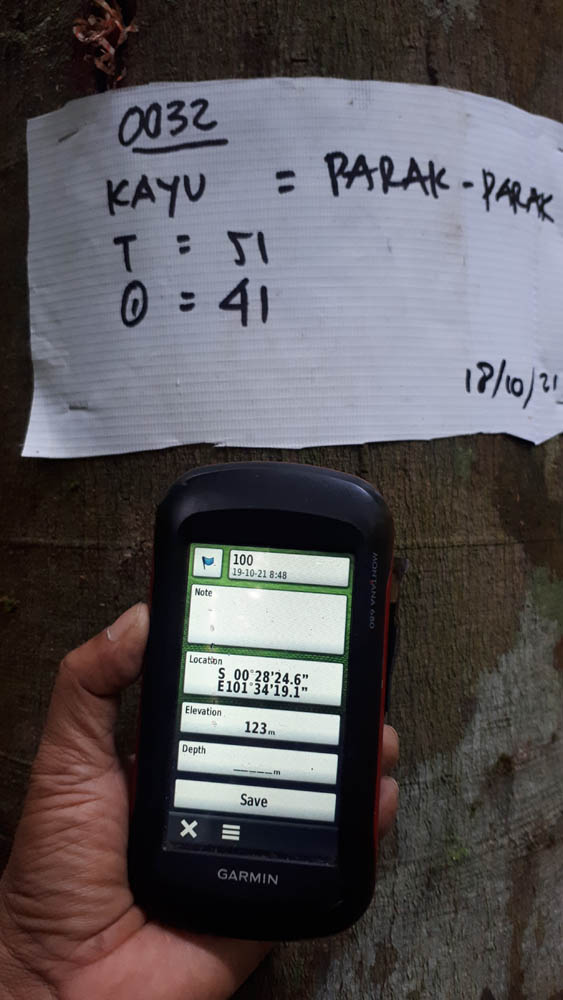 0032
KAYU = PARAK - PARAK
T = 51
Ø = 41
18/10/21
MONTANA 680
100
19-10-21 8:48
Note
Location
S 00°28'24.6"
E101°34'19.1"
Elevation
123 m
Depth
_____m
Save
GARMIN